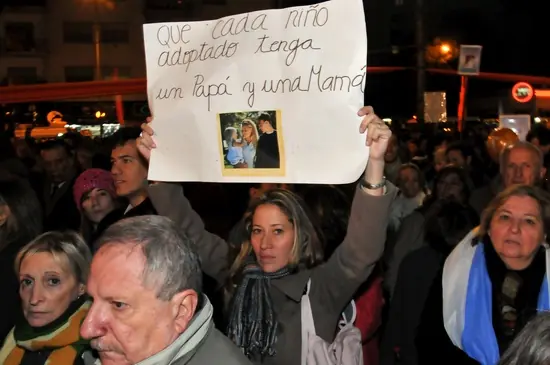 QUE cada niño
adoptado tenga
un Papá y una Mamá